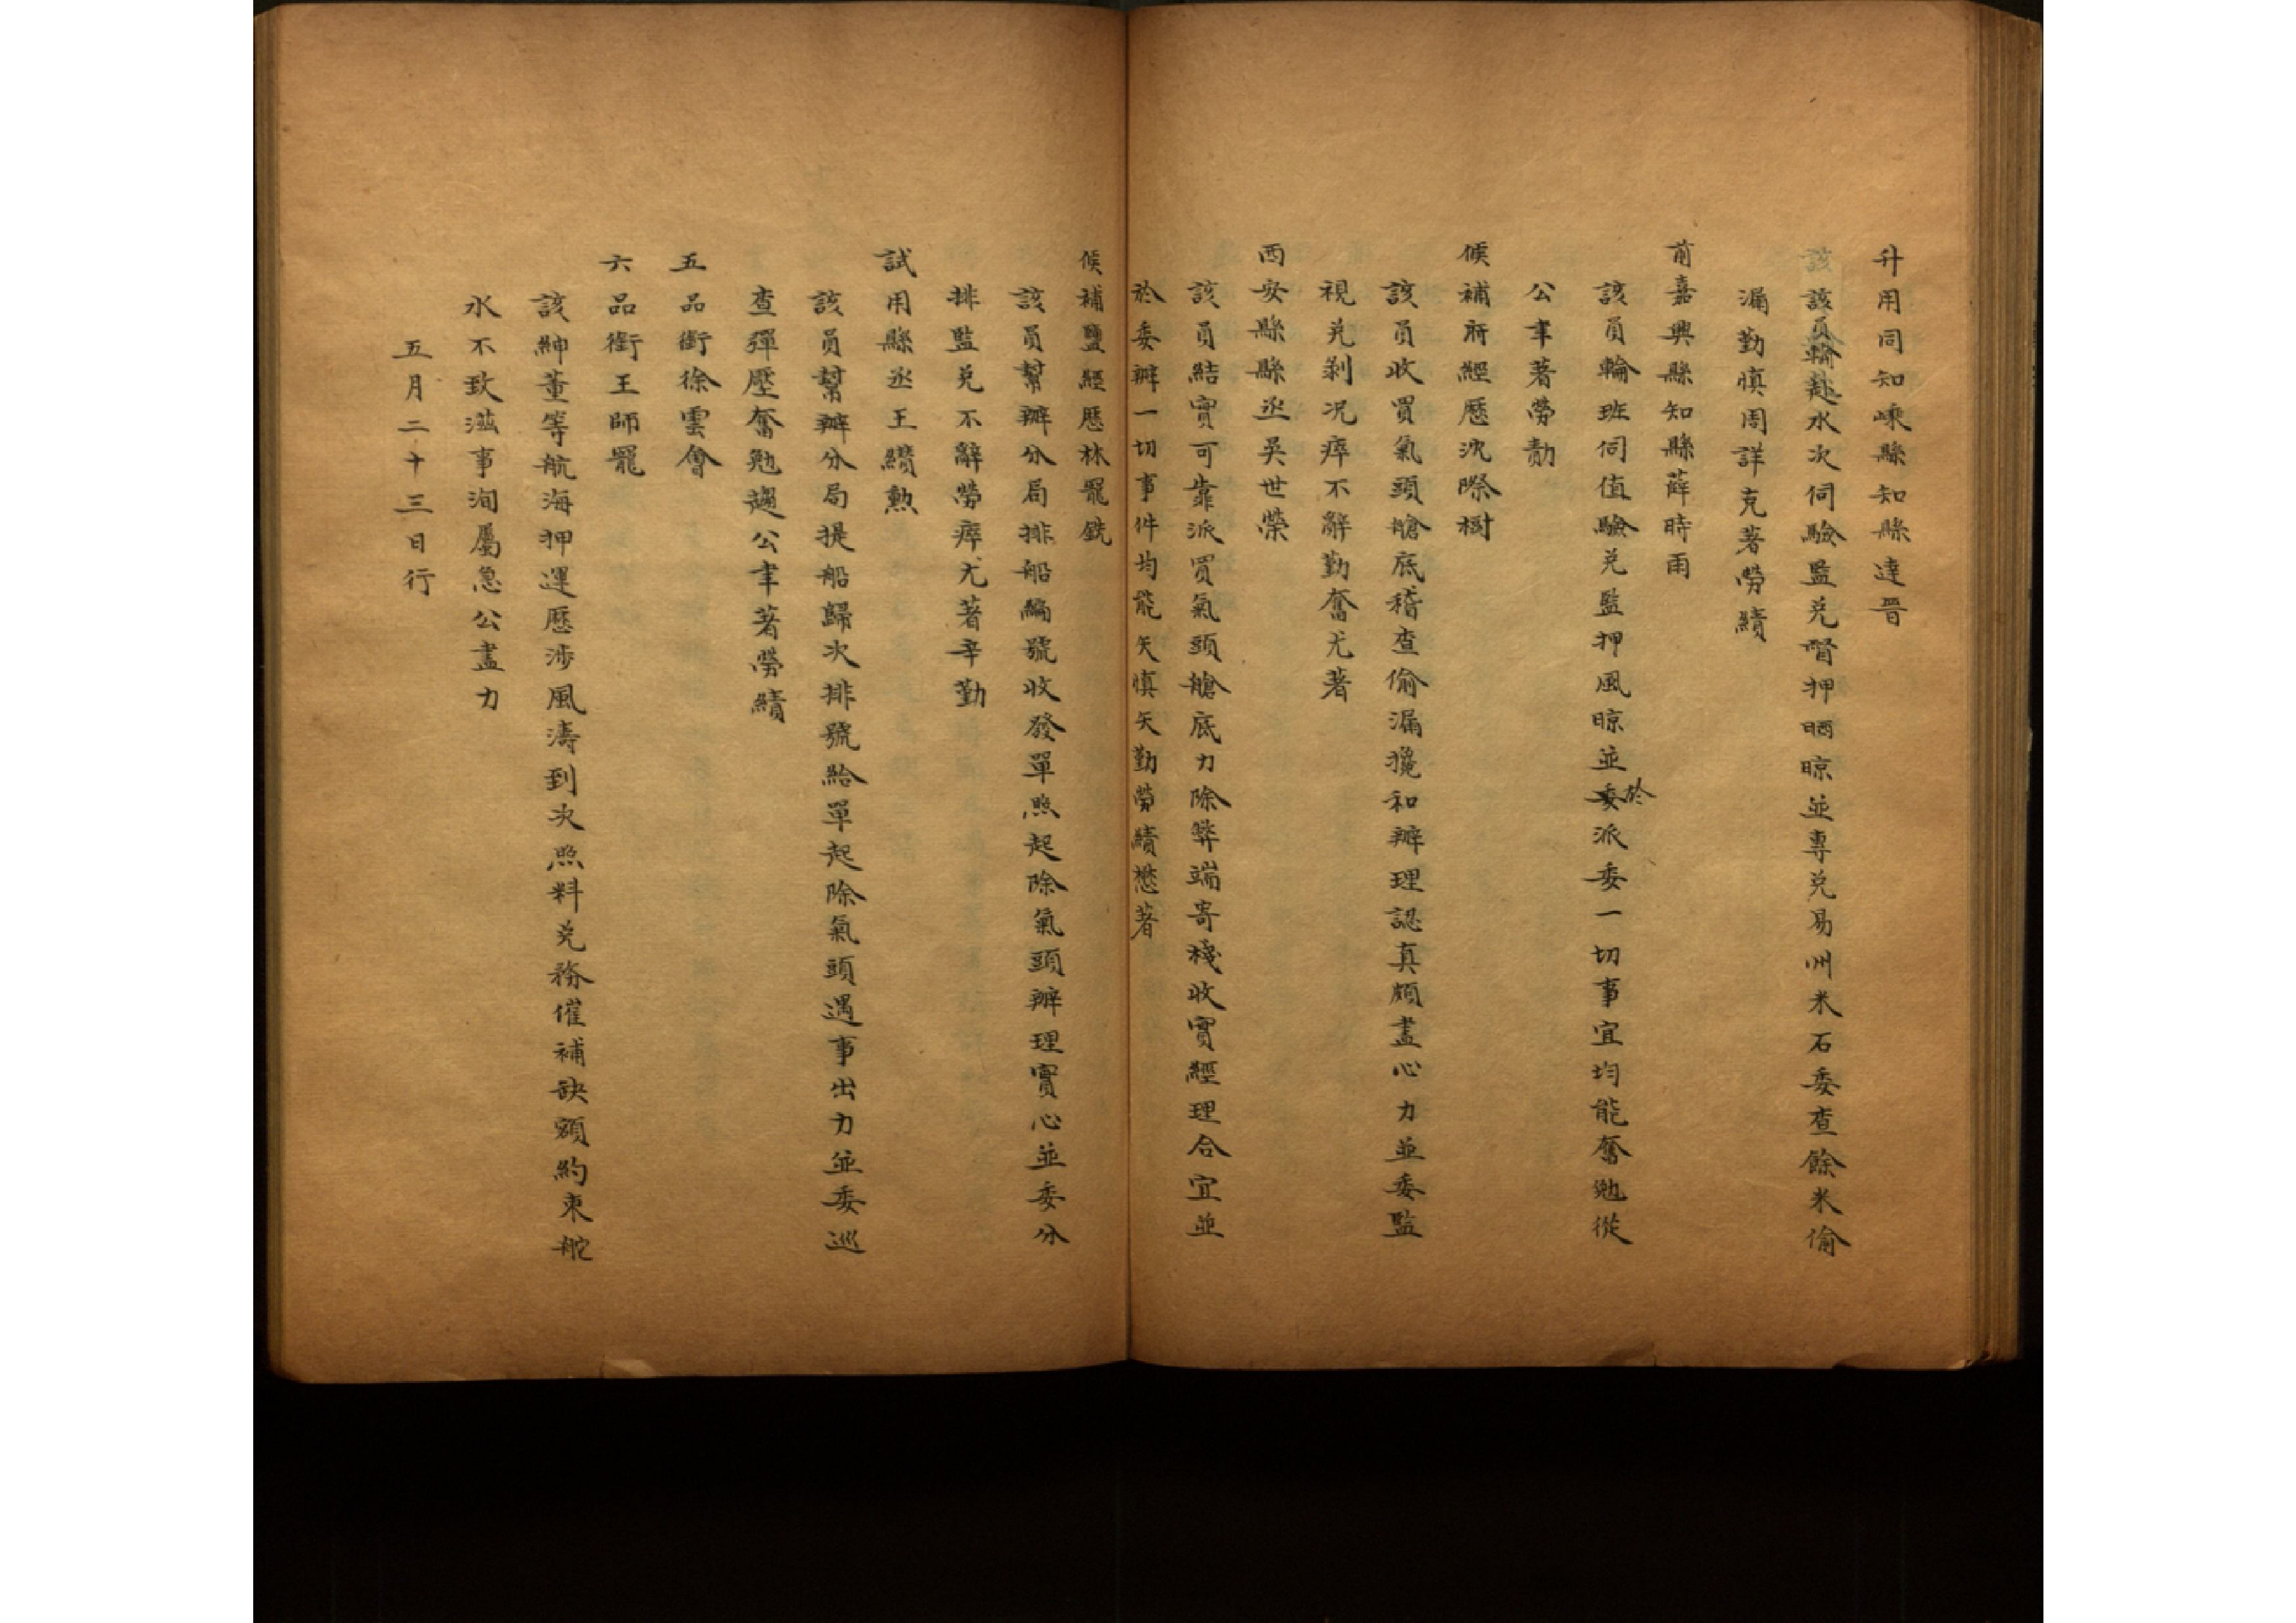 升用同知嵊縣知縣達晋
該員輪赴水次伺驗監兑督押晒晾並專兑易州米石委查餘米偷
漏勤慎周詳克著勞績
前嘉興縣知縣薛時雨
該員輪班伺值驗兑監押風晾並委於派委一切事宜均能奮勉從
公事著勞勩
候補府經歷沈際樹
該員收買氣頭艙底稽查偷漏攙和辦理認真頗盡心力並委監
視兑剝况瘁不辭勤奮尤著
西安縣縣丞吳世榮
該員結實可靠派買氣頭艙底力除弊端寄棧收實經理合宜並
於委辦一切事件均能矢慎矢勤勞績懋著
候補鹽經歷林罷銑
該員幫辦分局排船編號收發單照起除氣頭辦理實心並委分
排監兑不辭勞瘁尤著辛勤
試用縣丞王纘勲
該員幫辦分局提船歸次排號給單起除氣頭遇事出力並委巡
查彈壓奮勉趨公事著勞績
五品銜徐雲會
六品銜王師罷
該紳董等航海押運歷涉風濤到次照料兑務催補缺額約束舵
水不致滋事洵屬急公盡力
五月二十三日行